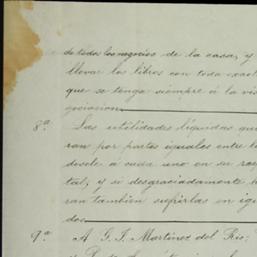 de todos los negocios de la casa, y
llevar los libros con toda exact
que se tenga siempre á la vis
gociacion
8ª. Las utilidades líquidas que
ran por partes iguales entre l
desele á cada uno en su
tal, y si desgraciadamente
ran tambien suplirlas en igu
dos
9ª. A G. J. Martinez del Rio;